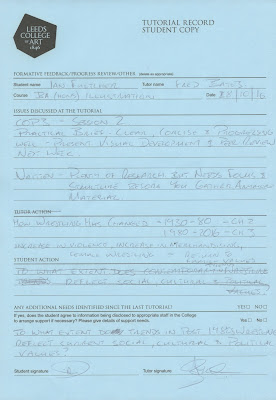 LEEDS
COLLEGE
OF ART
1846
TUTORIAL RECORD
STUDENT COPY
FORMATIVE FEEDBACK/PROGRESS REVIEW/OTHER (delete as appropriate)
Student name: IAN Tutor name: FRED BATES
Course: BA (HONS) ILLUSTRATION Date: /10/16
ISSUES DISCUSSED AT THE TUTORIAL
COP3 - SESSION 2
PRACTICAL CLEAR, CONCISE & PROGRESSING
WELL - PRESENT VISUAL DEVELOPMENT FOR REVIEW
NEXT WEEK.
WRITTEN - PLENTY OF RESEARCH BUT NEEDS FOCUS &
STRUCTURE BEFORE YOU GATHER ANYMORE
MATERIAL.
TUTOR ACTION
HOW WRESTLING HAS CHANGED - 1930-80 - CH 2
1980-2016 - CH 3
INCREASE IN VIOLENCE, INCREASE IN
FEMALE WRESTLING = RETURN TO
FAMILY VALUES
STUDENT ACTION
TO WHAT EXTENT DOES
REFLECT SOCIAL CULTURAL & POLITICAL
VALUES?
ANY ADDITIONAL NEEDS IDENTIFIED SINCE THE LAST TUTORIAL? YES/NO
If yes, does the student agree to information being disclosed to appropriate staff in the College
to arrange support if necessary? Please give details of support needs. Yes No
TO WHAT EXTENT DO TRENDS IN POST 1980s WRESTLING
REFLECT CURRENT SOCIAL, CULTURAL & POLITICAL
VALUES?
Student signature: Tutor signature: